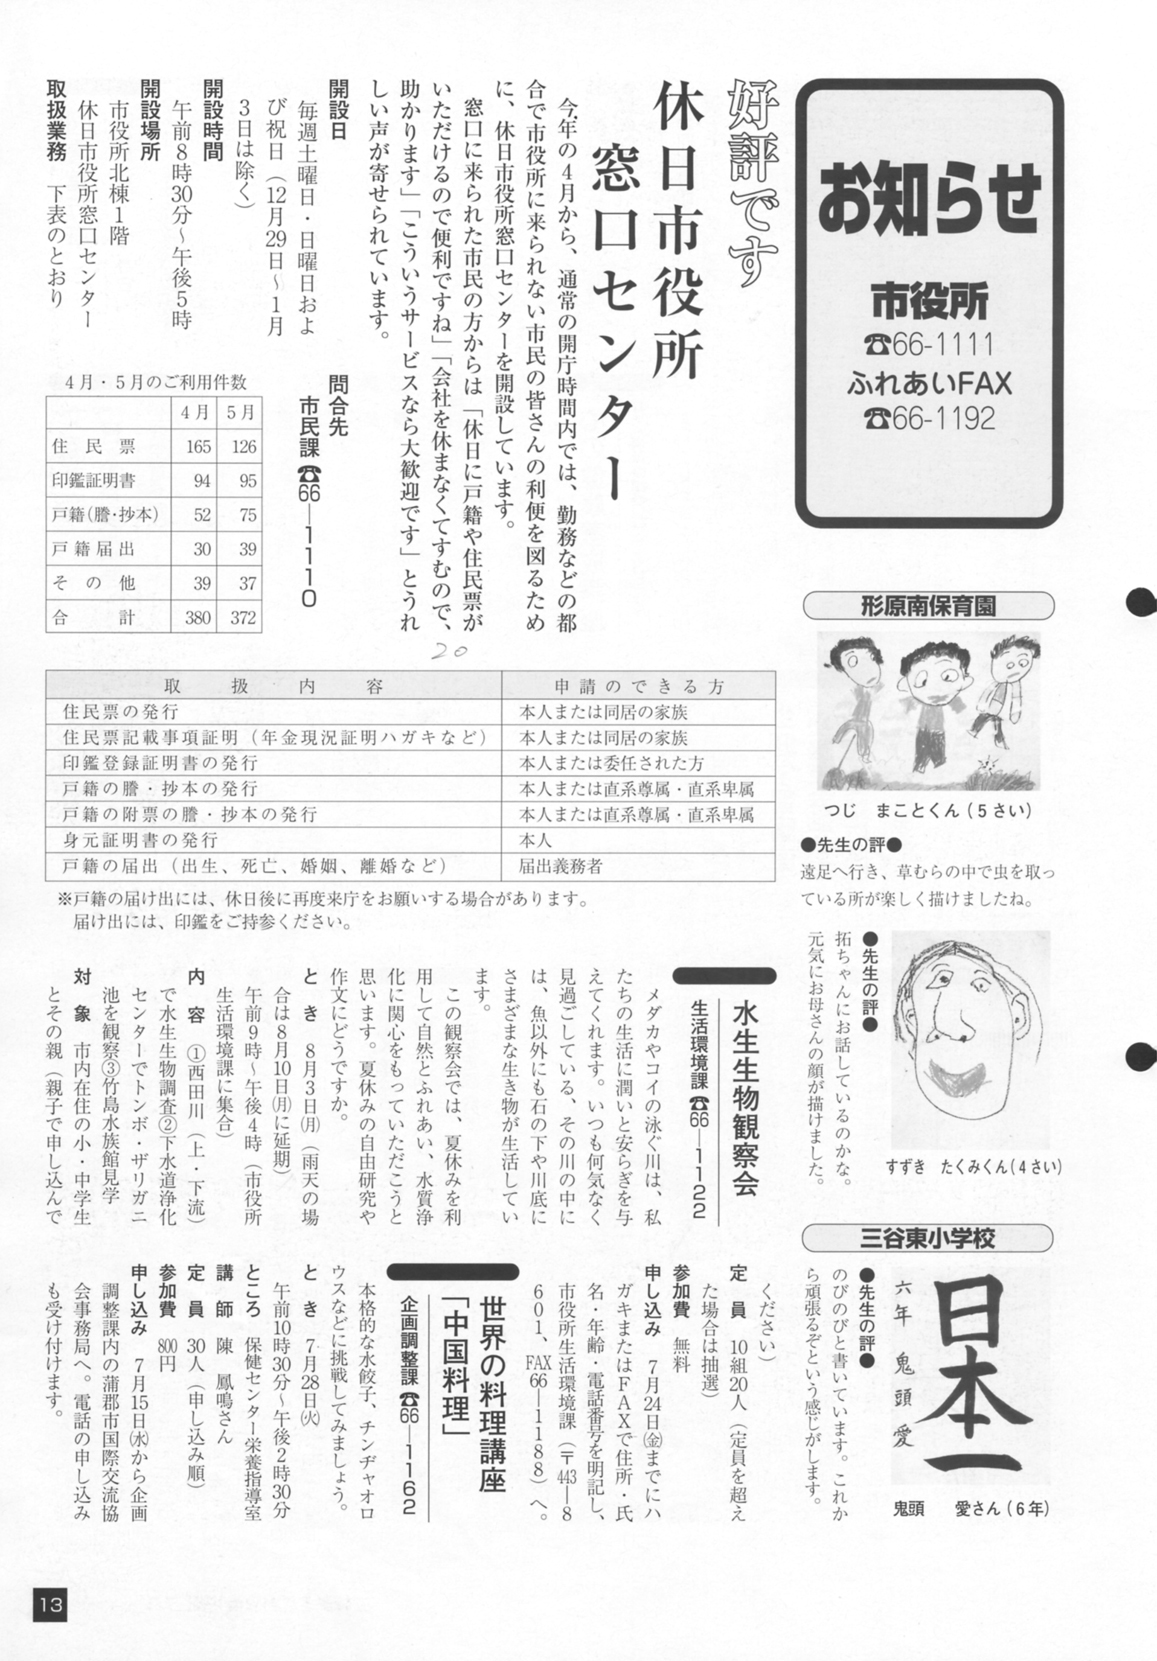 お知らせ
市役所
☎66-1111
ふれあいFAX
☎66-1192
好評です
休日市役所
窓口センター
今年の4月から、通常の開庁時間内では、勤務などの都
合で市役所に来られない市民の皆さんの利便を図るため
に、休日市役所窓口センターを開設しています。
窓口に来られた市民の方からは「休日に戸籍や住民票が
いただけるので便利ですね」「会社を休まなくてすむので、
助かります」「こういうサービスなら大歓迎です」とうれ
しい声が寄せられています。
開設日
毎週土曜日・日曜日およ
び祝日(12月29日〜1月
3日は除く)
開設時間
午前8時30分〜午後5時
開設場所
市役所北棟1階
休日市役所窓口センター
取扱業務 下表のとおり
問合先
市民課☎66―1110
4月・5月のご利用件数
4月 5月
住民票 165 126
印鑑証明書 94 95
戸籍(謄・抄本) 52 75
戸籍届出 30 39
その他 39 37
合計 380 372
20
取扱内容 申請のできる方
住民票の発行 本人または同居の家族
住民票記載事項証明(年金現況証明ハガキなど) 本人または同居の家族
印鑑登録証明書の発行 本人または委任された方
戸籍の謄・抄本の発行 本人または直系尊属・直系卑属
戸籍の附票の謄・抄本の発行 本人または直系尊属・直系卑属
身元証明書の発行 本人
戸籍の届出(出生、死亡、婚姻、離婚など) 届出義務者
※戸籍の届け出には、休日後に再度来庁をお願いする場合があります。
届け出には、印鑑をご持参ください。
形原南保育園
つじ まことくん(5さい)
●先生の評●
遠足へ行き、草むらの中で虫を取っ
ている所が楽しく描けましたね。
●先生の評●
拓ちゃんにお話しているのかな。
元気にお母さんの顔が描けました。
すずき たくみくん(4さい)
三谷東小学校
日本一
六年 鬼頭愛
●先生の評●
のびのびと書いています。これか
ら頑張るぞという感じがします。
鬼頭 愛さん(6年)
水生生物観察会
生活環境課☎66―1122
メダカやコイの泳ぐ川は、私
たちの生活に潤いと安らぎを与
えてくれます。いつも何気なく
見過ごしている、その川の中に
は、魚以外にも石の下や川底に
さまざまな生き物が生活してい
ます。
この観察会では、夏休みを利
用して自然とふれあい、水質浄
化に関心をもっていただこうと
思います。夏休みの自由研究や
作文にどうですか。
とき 8月3日(月)(雨天の場
合は8月10日(月)に延期)
午前9時〜午後4時(市役所
生活環境課に集合)
内容 ①西田川(上・下流)
で水生生物調査②下水道浄化
センターでトンボ・ザリガニ
池を観察③竹島水族館見学
対象 市内在住の小・中学生
とその親(親子で申し込んで
ください)
定員 10組20人(定員を超え
た場合は抽選)
参加費 無料
申し込み 7月24日(金)までにハ
ガキまたはFAXで住所・氏
名・年齢・電話番号を明記し、
市役所生活環境課(〒443―8
601、FAX66―1188)へ。
世界の料理講座
「中国料理」
企画調整課☎66―1162
本格的な水餃子、チンヂャオロ
ウスなどに挑戦してみましょう。
とき 7月28日(火)
午前10時30分〜午後2時30分
ところ 保健センター栄養指導室
講師 陳 鳳鳴さん
定員 30人(申し込み順)
参加費 800円
申し込み 7月15日(水)から企画
調整課内の蒲郡市国際交流協
会事務局へ。電話の申し込み
も受け付けます。
13